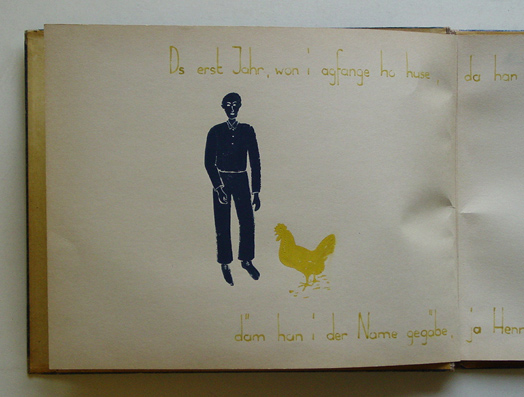 Ds erst Jahr, won i agfange ha huse, da han
däm han i der Name gegäbe, ja Henn